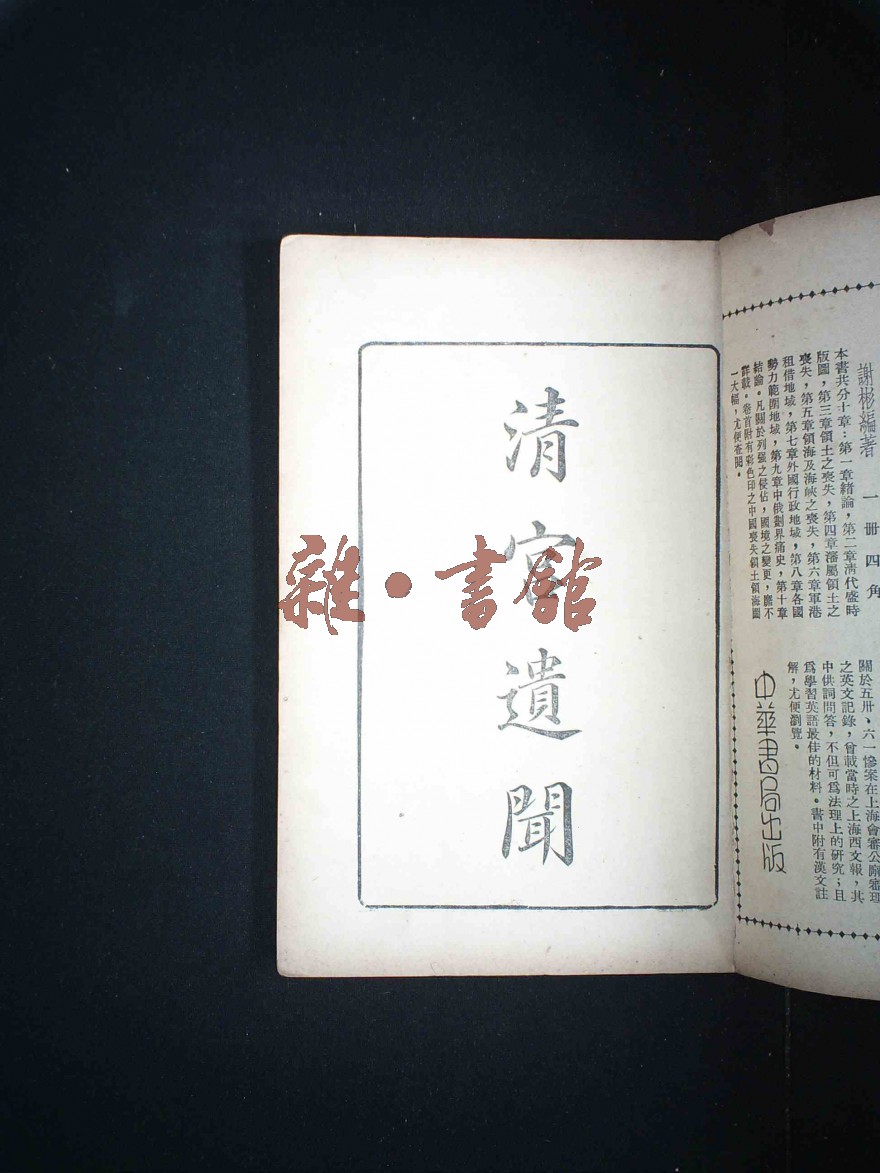 謝彬編著 一冊四角
本書共分十章：第一章緒論，第二章清代盛時
版圖，第三章領土之喪失，第四章藩屬領土之
喪失，第五章領海及海峽之喪失，第六章軍港
租借地域，第七章外國行政地域，第八章各國
勢力範圍地域，第九章中俄劃界痛史，第十章
結論。凡關於列强之侵佔，國境之變更，靡不
詳載。卷首附有彩色印之中國喪失領土領海圖
一大幅，尤便查閱。
關於五卅、六一慘案在上海會審公廨審理
之英文記錄，曾載當時之上海西文報，其
中供詞問答，不但可爲法理上的研究；且
爲學習英語最佳的材料。書中附有漢文註
解，尤便瀏覽。
中華書局出版
清宮遺聞
雜·書館